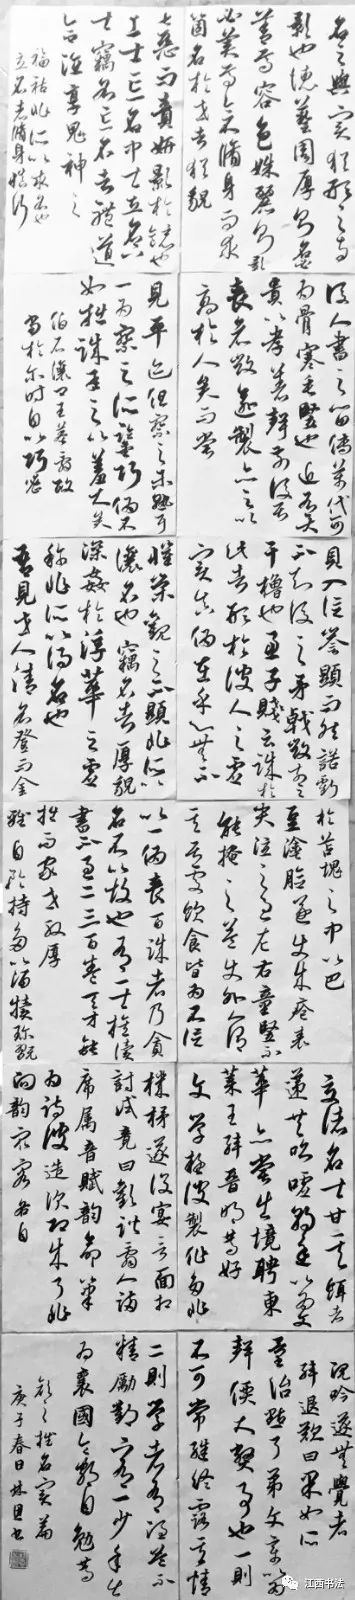 名之與實猶形之與
影也德藝周厚則名必
善焉容色姝麗則影
必美焉今不脩身而求
令名於世者猶貌
甚惡而責妍影於鏡也
上士忘名中士立名下
士竊名忘名者體道
合德享鬼神之
福祐非所以求名也
立名者脩身慎行
沒人書之留傳萬代可
為骨寒毛豎也近有大
貴以孝著聲前後居
喪哀毀踰制亦足以
高於人矣而嘗
見乎迹但察之未熟耳
一為察之所鑒巧偽不
如拙誠承之以羞大矣
伯石讓卿王莽辭政
當於爾時自以巧密
貝入信譽顯而然諾虧
不知後之矛戟毀前之
干櫓也虙子賤云誠於
此者形於彼人之虛
實真偽在乎心無不
惟榮觀之不顯非所以
讓名也竊名者厚貌
深姦於浮華之虛
稱非所以得名也
吾見世人清名登而金
於苫塊之中以巴
豆塗臉遂使成瘡表
哭泣之過左右童豎不
能掩之益使外人謂
其居處飲食皆為不信
以一偽喪百誠者乃貪
名不以故也有一士族讀
書不過二三百卷天才鈍
拙而家世殷厚
雅自矜持多以酒犢珍玩
交諸名士甘其餌者
遞共吹噓朝廷以為文
華亦嘗出境聘東
萊王韓晉明篤好
文學疑彼製作多非
機杼遂設宴言面相
討試竟日歡諧辭人滿
席屬音賦韻命筆
為詩彼造次即成了非
向韻眾客各自
沉吟遂無覺者
韓退歎曰果如所
量治點子弟文章以為
聲價大弊事也一則
不可常繼終露其情
二則學者有憑益不
精勵鄴下有一少年出
為襄國令頗自勉篤
顏之推名實篇
庚子春日林恩書
江西书法